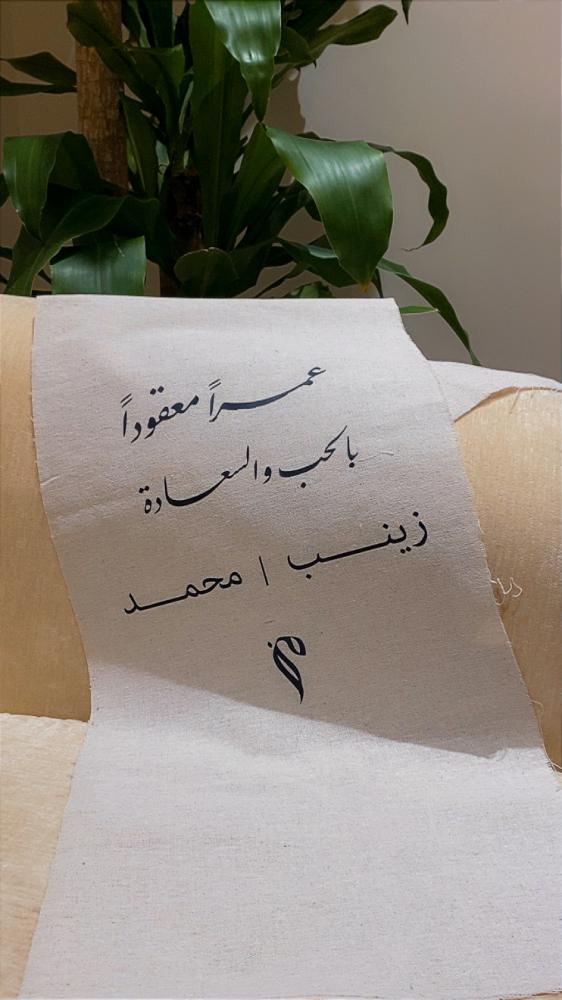 عمراً معقوداً
بالحب والسعادة
زينب | محمد